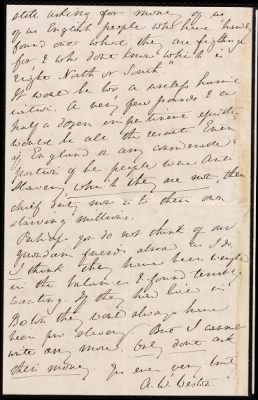 state asking for money of us
of us English people who have
found out where they are fighting
for & who dont know which is
right North or South"
It would be too a useless humil
iation. A very few pounds & a
half a dozen impertinent epistles
would be all the result. Even
if England or any considerable
portion of the people were Anti
Slavery, which they are not, their
chief duty now is to their own
starving millions.
Perhaps you do not think of our
friends abroad as I do.
I think they have been weighed
in the balances & found terribly
wanting. If they had lived in
Boston they would always have
been pro slavery. But I cannot
write any more. Only dont ask
their money. Yrs ever very truly
A. W. Weston